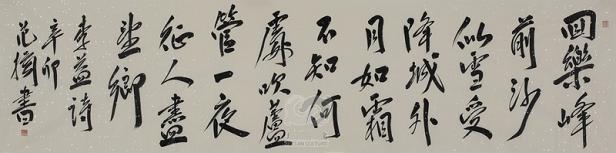 回樂峰
前沙
似雪受
降城外
月如霜
不知何
處吹蘆
管一夜
征人盡
望鄉
李益詩
辛卯
范書